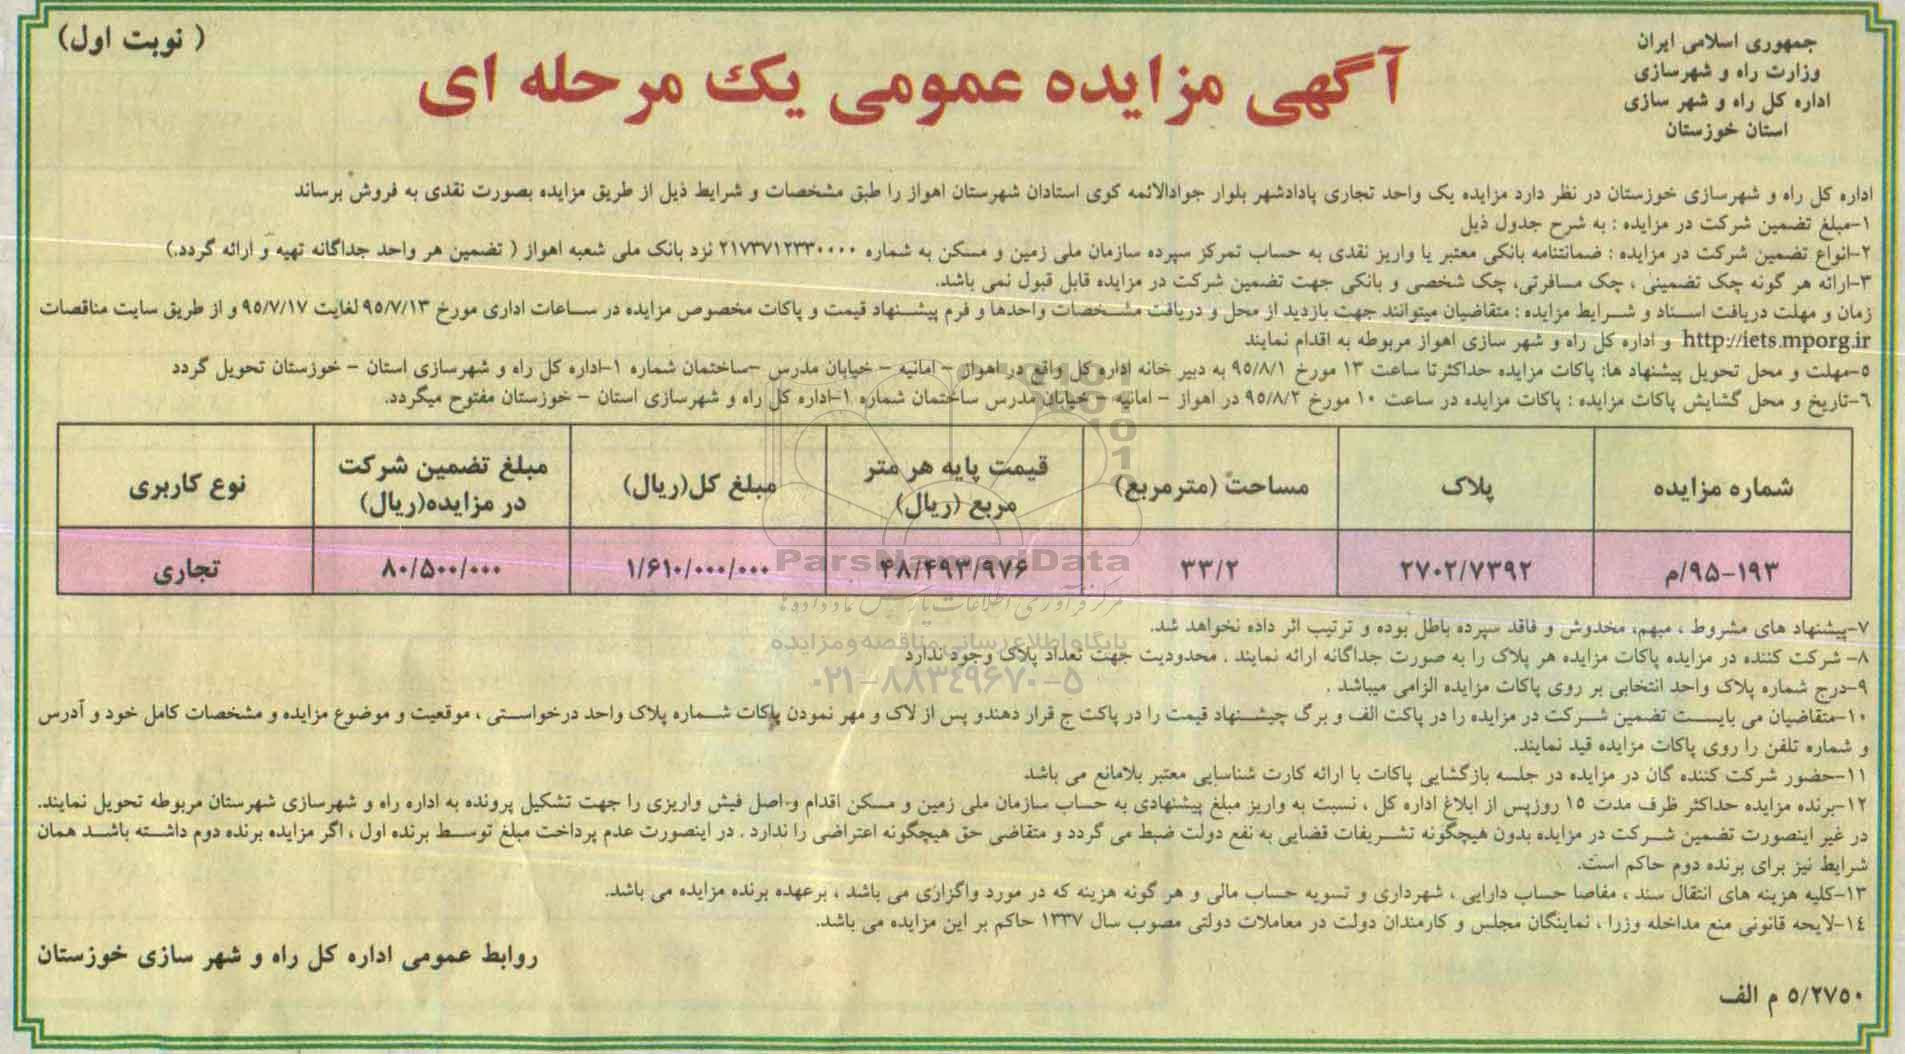 جمهوری اسلامی ایران
وزارت راه و شهرسازی
اداره کل راه و شهر سازی
استان خوزستان
( نوبت اول)
آگهی مزایده عمومی یک مرحله ای
اداره کل راه و شهرسازی خوزستان در نظر دارد مزایده یک واحد تجاری پادادشهر بلوار جوادالائمه کوی استادان شهرستان اهواز را طبق مشخصات و شرایط ذیل از طریق مزایده بصورت نقدی به فروش برساند
۱-مبلغ تضمین شرکت در مزایده : به شرح جدول ذیل
۲-انواع تضمین شرکت در مزایده : ضمانتنامه بانکی معتبر یا واریز نقدی به حساب تمرکز سپرده سازمان ملی زمین و مسکن به شماره ۲۱۷۳۷۱۲۳۳۰۰۰۰ نزد بانک ملی شعبه اهواز ( تضمین هر واحد جداگانه تهیه و ارائه گردد.)
۳-ارائه هر گونه چک تضمینی ، چک مسافرتی، چک شخصی و بانکی جهت تضمین شرکت در مزایده قابل قبول نمی باشد.
زمان و مهلت دریافت اسناد و شرایط مزایده : متقاضیان میتوانند جهت بازدید از محل و دریافت مشخصات واحدها و فرم پیشنهاد قیمت و پاکات مخصوص مزایده در ساعات اداری مورخ ۹۵/۷/۱۳ لغایت ۹۵/۷/۱۷ و از طریق سایت مناقصات
http://iets.mporg.ir و اداره کل راه و شهر سازی اهواز مربوطه به اقدام نمایند
۵-مهلت و محل تحویل پیشنهاد ها: پاکات مزایده حداکثرتا ساعت ۱۳ مورخ ۹۵/۸/۱ به دبیر خانه اداره کل واقع در اهواز - امانیه - خیابان مدرس -ساختمان شماره ۱-اداره کل راه و شهرسازی استان - خوزستان تحویل گردد
۶-تاریخ و محل گشایش پاکات مزایده : پاکات مزایده در ساعت ۱۰ مورخ ۹۵/۸/۲ در اهواز - امانیه - خیابان مدرس ساختمان شماره ۱-اداره کل راه و شهرسازی استان - خوزستان مفتوح میگردد.
شماره مزایده پلاک مساحت (مترمربع) قیمت پایه هر متر مربع (ریال) مبلغ کل(ریال) مبلغ تضمین شرکت در مزایده(ریال) نوع کاربری
۹۵-۱۹۳/م ۲۷۰۲/۷۳۹۲ ۳۳/۲ ۴۸/۴۹۳/۹۷۶ ۱/۶۱۰/۰۰۰/۰۰۰ ۸۰/۵۰۰/۰۰۰ تجاری
ParsNamadData
مرکز فرآوری اطلاعات پارس نماد داده ها
پایگاه اطلاع رسانی مناقصه و مزایده
۰۲۱-۸۸۳۴۹۶۷۰-۵
۷-پیشنهاد های مشروط ، مبهم، مخدوش و فاقد سپرده باطل بوده و ترتیب اثر داده نخواهد شد.
۸- شرکت کننده در مزایده پاکات مزایده هر پلاک را به صورت جداگانه ارائه نمایند . محدودیت جهت تعداد پلاک وجود ندارد
۹-درج شماره پلاک واحد انتخابی بر روی پاکات مزایده الزامی میباشد .
۱۰-متقاضیان می بایست تضمین شرکت در مزایده را در پاکت الف و برگ چیشنهاد قیمت را در پاکت ج قرار دهندو پس از لاک و مهر نمودن پاکات شماره پلاک واحد درخواستی ، موقعیت و موضوع مزایده و مشخصات کامل خود و آدرس
و شماره تلفن را روی پاکات مزایده قید نمایند.
۱۱-حضور شرکت کننده گان در مزایده در جلسه بازگشایی پاکات با ارائه کارت شناسایی معتبر بلامانع می باشد
۱۲-برنده مزایده حداکثر ظرف مدت ۱۵ روزپس از ابلاغ اداره کل ، نسبت به واریز مبلغ پیشنهادی به حساب سازمان ملی زمین و مسکن اقدام و اصل فیش واریزی را جهت تشکیل پرونده به اداره راه و شهرسازی شهرستان مربوطه تحویل نمایند.
در غیر اینصورت تضمین شرکت در مزایده بدون هیچگونه تشریفات قضایی به نفع دولت ضبط می گردد و متقاضی حق هیچگونه اعتراضی را ندارد . در اینصورت عدم پرداخت مبلغ توسط برنده اول ، اگر مزایده برنده دوم داشته باشد همان
شرایط نیز برای برنده دوم حاکم است.
۱۳-کلیه هزینه های انتقال سند ، مفاصا حساب دارایی ، شهرداری و تسویه حساب مالی و هر گونه هزینه که در مورد واگزاری می باشد ، برعهده برنده مزایده می باشد.
۱۴-لایحه قانونی منع مداخله وزرا ، نمایندگان مجلس و کارمندان دولت در معاملات دولتی مصوب سال ۱۳۳۷ حاکم بر این مزایده می باشد.
روابط عمومی اداره کل راه و شهر سازی خوزستان
۵/۲۷۵۰ م الف